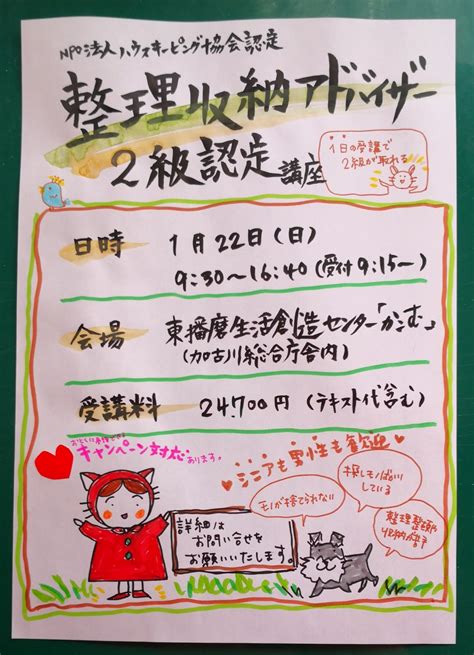 NPO法人ハウスキーピング協会認定
整理収納アドバイザー
2級認定講座
1日の受講で
2級が取れる
日時 1月22日(日)
9:30～16:40(受付9:15ー)
会場 東播磨生活創造センター「かこむ」
(加古川総合庁舎内)
受講料 24,700円(テキスト代含む)
キャンペーン対応
あります。
シニアも男性も歓迎
詳細は
お問い合せを
お願いいたします。
モノが捨てられない
探しモノばかり
している
整理整頓